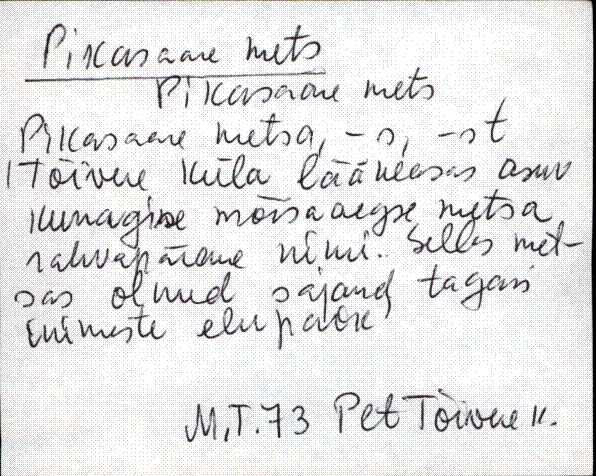 Pikasaare mets
Pikasaare mets
Pikasaare metsa, -s, -st
Tõivere küla lääneosas asuv
kunagise mõisaaegse metsa
rahvapärane nimi. Selles met-
sas olnud sajand tagasi
inimeste elupaik
M.T.73 Pet Tõivere k.